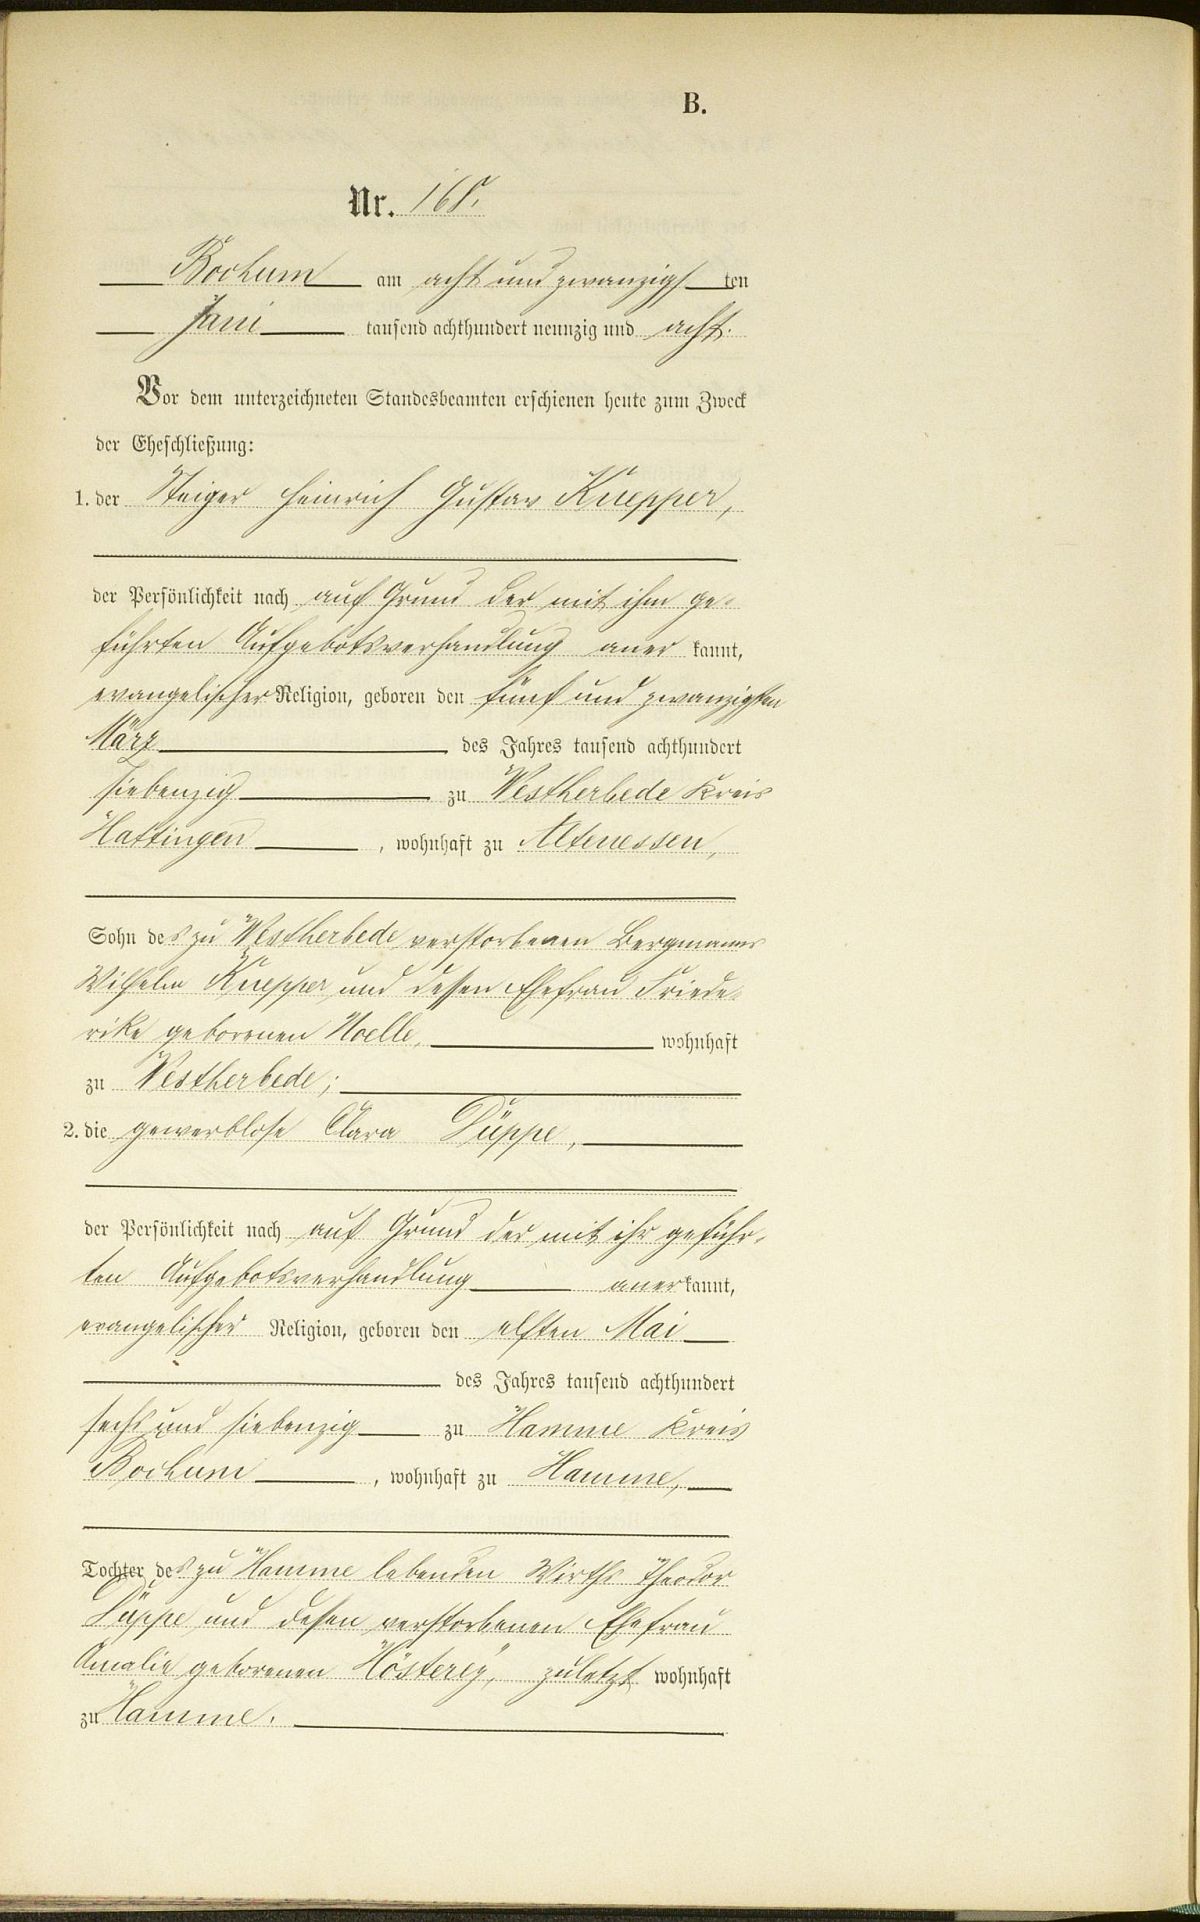 B.
Nr. 168.
Bochum am acht und zwanzigsten
Juni tausend achthundert neunzig und acht.
Vor dem unterzeichneten Standesbeamten erschienen heute zum Zweck
der Eheschließung:
1. der Steiger Heinrich Gustav Knepper,
der Persönlichkeit nach auf Grund der mit ihm ge-
führten Aufgebotsverhandlung anerkannt,
evangelischer Religion, geboren den fünf und zwanzigsten
März des Jahres tausend achthundert
siebenzig zu Westherbede Kreis
Hattingen, wohnhaft zu Altenessen,
Sohn des zu Westherbede verstorbenen Bergmanns
Wilhelm Knepper und dessen Ehefrau Friede-
rike geborenen Noelle, wohnhaft
zu Westherbede;
2. die gewerblose Clara Düppe,
der Persönlichkeit nach auf Grund der mit ihr geführ-
ten Aufgebotsverhandlung anerkannt,
evangelischer Religion, geboren den elften Mai
des Jahres tausend achthundert
sechs und siebenzig zu Hamme Kreis
Bochum, wohnhaft zu Hamme,
Tochter des zu Hamme lebenden Wirths Theodor
Düppe und dessen verstorbenen Ehefrau
Amalie geborenen Hösterey, zuletzt wohnhaft
zu Hamme.